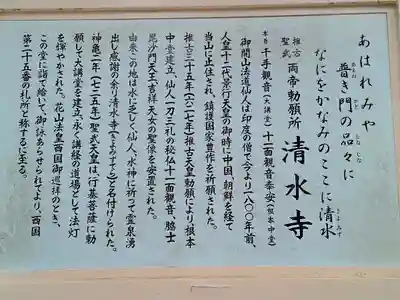 あはれみや
普き門の品々に
あまね
かど
しなじな
なにをかなみのここに清水
きよみず
推古
聖武
両帝勅願所 清水寺
本尊 千手観音(大講堂) 十一面観音奉安(根本中堂)
御開山法道仙人は印度の僧で今より一八〇〇年前、
人皇十二代景行天皇の御時に中国、朝鮮を経て
当山に止住され、鎮護国家豊作を祈願された。
推古三十五年(六二七年)推古天皇勅願により根本
中堂建立、仙人一刀三礼の秘仏十一面観音、脇士
毘沙門天王、吉祥天女の聖像を安置された。
由来この地は水に乏しく仙人、水神に祈って霊泉湧
出し感謝の余り清水寺(きよみずでら)と名付けられた。
神亀二年(七二五年)聖武天皇は、行基菩薩に勅
願して大講堂を建立、永く講経の道場として法灯
を輝やかされた。花山法皇西国御巡拝のとき、
この堂に詣り給いて御詠あらせられてより、西国
第二十五番の札所と称するに至る。